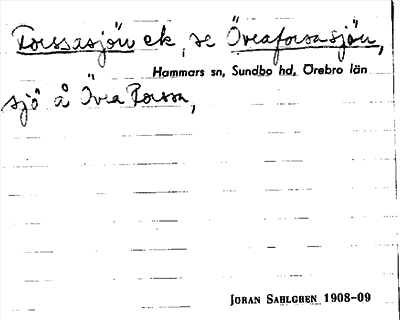 Forssasjön ek, se Övraforsasjön,
Hammars sn, Sundbo hd, Örebro län
sjö å Övra Forssa,
JÖRAN SAHLGREN 1908-09